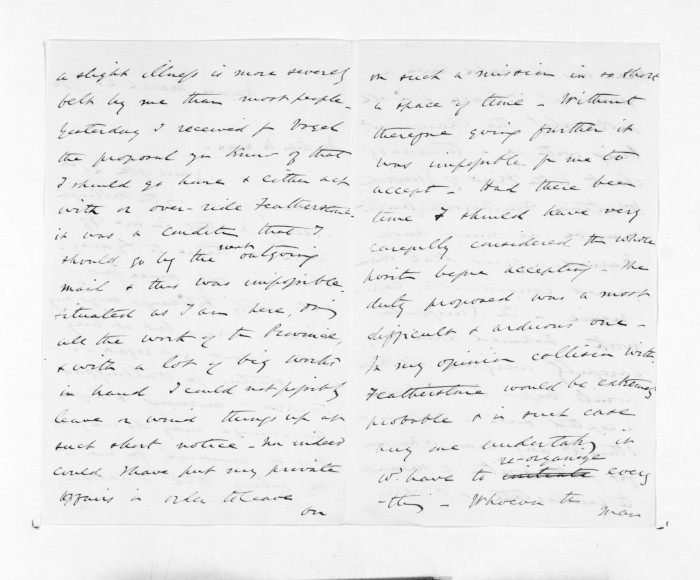 a slight illness is more severely
felt by me than most people.
Yesterday I received fr Vogel
the proposal you know of that
I should go home & either act
with or over-ride Featherstone.
it was a condition that I
should go by the next outgoing
mail & this was impossible.
Situated as I am here, doing
all the work of the Province,
& with a lot of big works
in hand I could not possibly
leave or wind things up at
such short notice - Nor indeed
could I have put my private
affairs in order to leave
on
on such a mission in so short
a space of time - Without
therefore going further it
was impossible for me to
accept - Had there been
time I should have very
carefully considered the whole
point before accepting - The
duty proposed was a most
difficult & arduous one -
In my opinion collision with
Featherstone would be extremely
probable & in such case
any one undertaking it
wd. have to initiate re-organise every
-thing - Whoever the
man